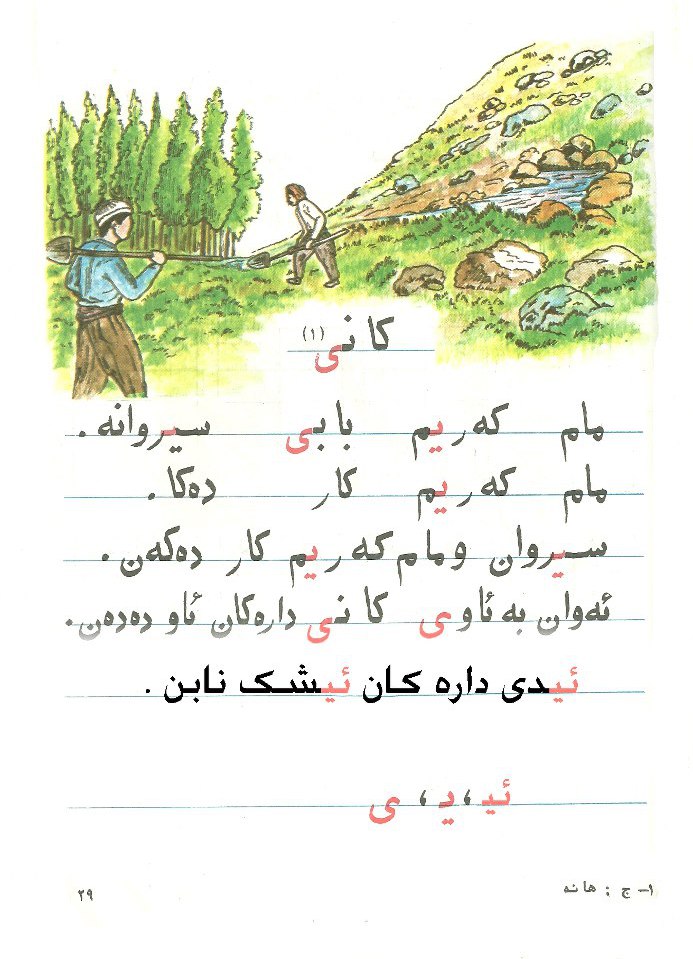 کانی (١)
مام کەریم بابی سیروانە.
مام کەریم کار دەکا.
سیروان ومام کەریم کار دەکەن.
ئەوان بە ئاوی کانی دارەکان ئاو دەدەن.
ئیدی دارە کان ئیشک نابن .
ئیـ ، یـ ، ی
١- ج : هانە
٢٩